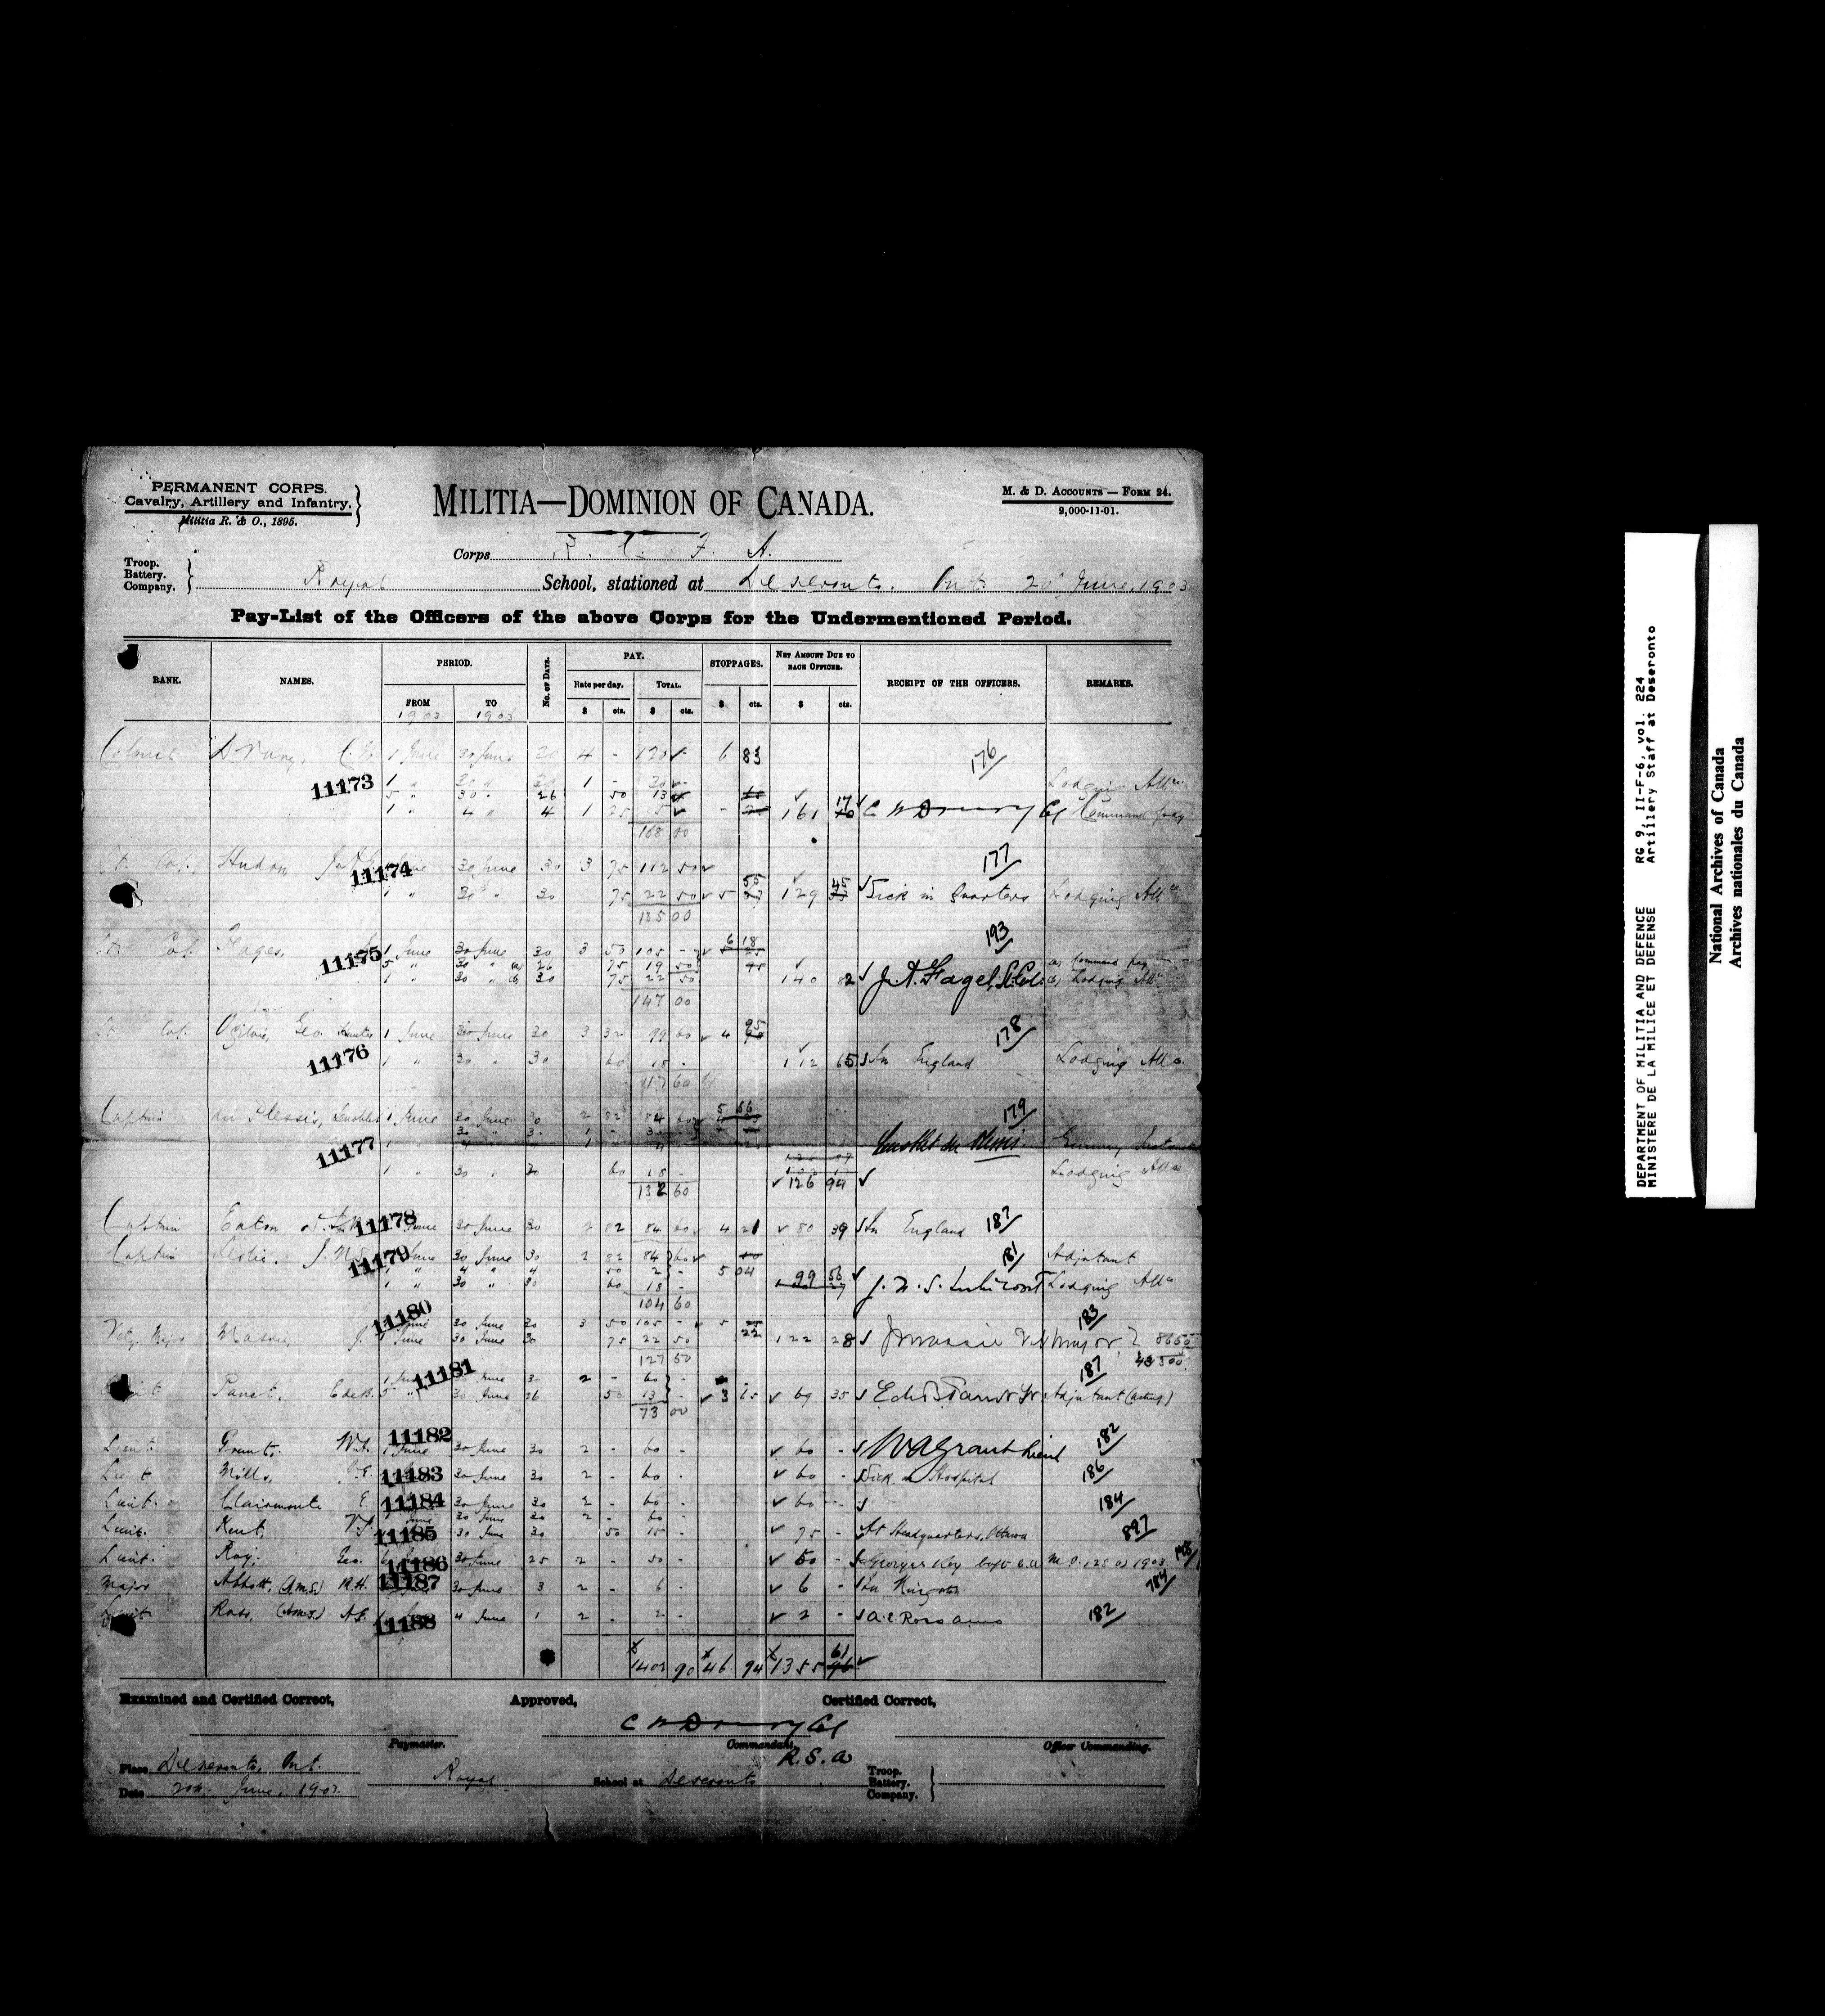 PERMANENT CORPS.
Cavalry, Artillery and Infantry.
Militia R. & O., 1895.
MILITIA—DOMINION OF CANADA.
M. & D. ACCOUNTS — FORM 24.
2,000-11-01.
Corps R. C. F. A.
Troop.
Battery.
Company.
Royal School, stationed at Deseronto. Ont. June, 1903
Pay-List of the Officers of the above Corps for the Undermentioned Period.
RANK. NAMES. PERIOD. No. OF DAYS. PAY. STOPPAGES. NET AMOUNT DUE TO EACH OFFICER. RECEIPT OF THE OFFICERS. REMARKS.
FROM TO Rate per day. TOTAL.
1903 1903 $ cts. $ cts. $ cts. $ cts.
Colonel Drury, C. W. 1 June 30 June 30 4 - 120 - 6 83 176
11173 1 " 30 " 30 1 - 30 - Lodging Allce
5 " 30 " 26 50 13 -
1 " 4 " 4 1 25 5 - 161 17 C W Drury Col Command pay
168 00
Lt. Col. Hudon 11174 June 30 June 30 3 75 112 50 177
1 " 30 " 30 75 22 50 5 55 129 45 Sick in Quarters Lodging Allce
135 00
Lt. Col. Fages, 11175 1 June 30 June 30 3 50 105 - 6 18 193
5 " 30 " (a) 26 75 19 50 (a) Command Pay
1 " 30 " (b) 30 75 22 50 140 82 J. A. Fages Lt. Col. (b) Lodging Allce
147 00
Lt. Col. Ogilvie, Geo. Hunter 1 June 30 June 30 3 32 99 60 4 95 178
11176 1 " 30 " 30 60 18 - 112 65 In England Lodging Allce
117 60
Captain du Plessis, 1 June 30 June 30 2 82 84 60 5 66 179
11177 30 " 30 1 - 30 -
1 " 30 " 30 60 18 - Lodging Allce
132 60 126 94
Captain Eaton 11178 June 30 June 30 2 82 84 60 4 21 80 39 In England 187
Captain Leslie, J. N. S. 11179 June 30 June 30 2 82 84 60 181 Adjutant
1 " 4 " 4 50 2 - 5 04
1 " 30 " 30 60 18 - 99 56 Lodging Allce
104 60
11180 June 30 June 30 3 50 105 - 5 183
Vety. Major Massie, J. 1 June 30 June 30 75 22 50 22 122 28
127 50
11181 June 30 2 - 60 - 187
Lieut. Panet, E de B. 5 " 30 June 26 50 13 - 3 65 69 35 Adjutant (acting)
73 00
Lieut. Grant, W. A. 11182 1 June 30 June 30 2 - 60 - 60 - W A Grant Lieut 182
Lieut Mills, 11183 30 June 30 2 - 60 - 60 - Sick in Hospital 186
Lieut. Clairmonte E. 11184 30 June 30 2 - 60 - 60 - 184
June 30 June 30 2 - 60 -
Lieut. Kent, 11185 30 June 30 50 15 - 75 - At Headquarters, Ottawa 897
Lieut. Roy, Geo. 11186 30 June 25 2 - 50 - 50 - M. O. 128 of 1903.
Major Abbott, (A.M.S.) R.H. 11187 30 June 3 2 - 6 - 6 - In Kingston 784
Lieut Ross, (A.M.S.) A.E. 11188 4 June 1 2 - 2 - 2 - A. E. Ross AMS 182
1402 90 46 94 1355 61
Examined and Certified Correct, Approved, Certified Correct,
C W Drury Col
Paymaster. Commandant, Officer Commanding.
R.S.A
Place Deseronto, Ont. Royal School at Deseronto Troop.
Battery.
Company.
Date June, 1903.
DEPARTMENT OF MILITIA AND DEFENCE RG 9, II-F-6, vol. 224
MINISTERE DE LA MILICE ET DEFENSE Artillery Staff at Deseronto
National Archives of Canada
Archives nationales du Canada